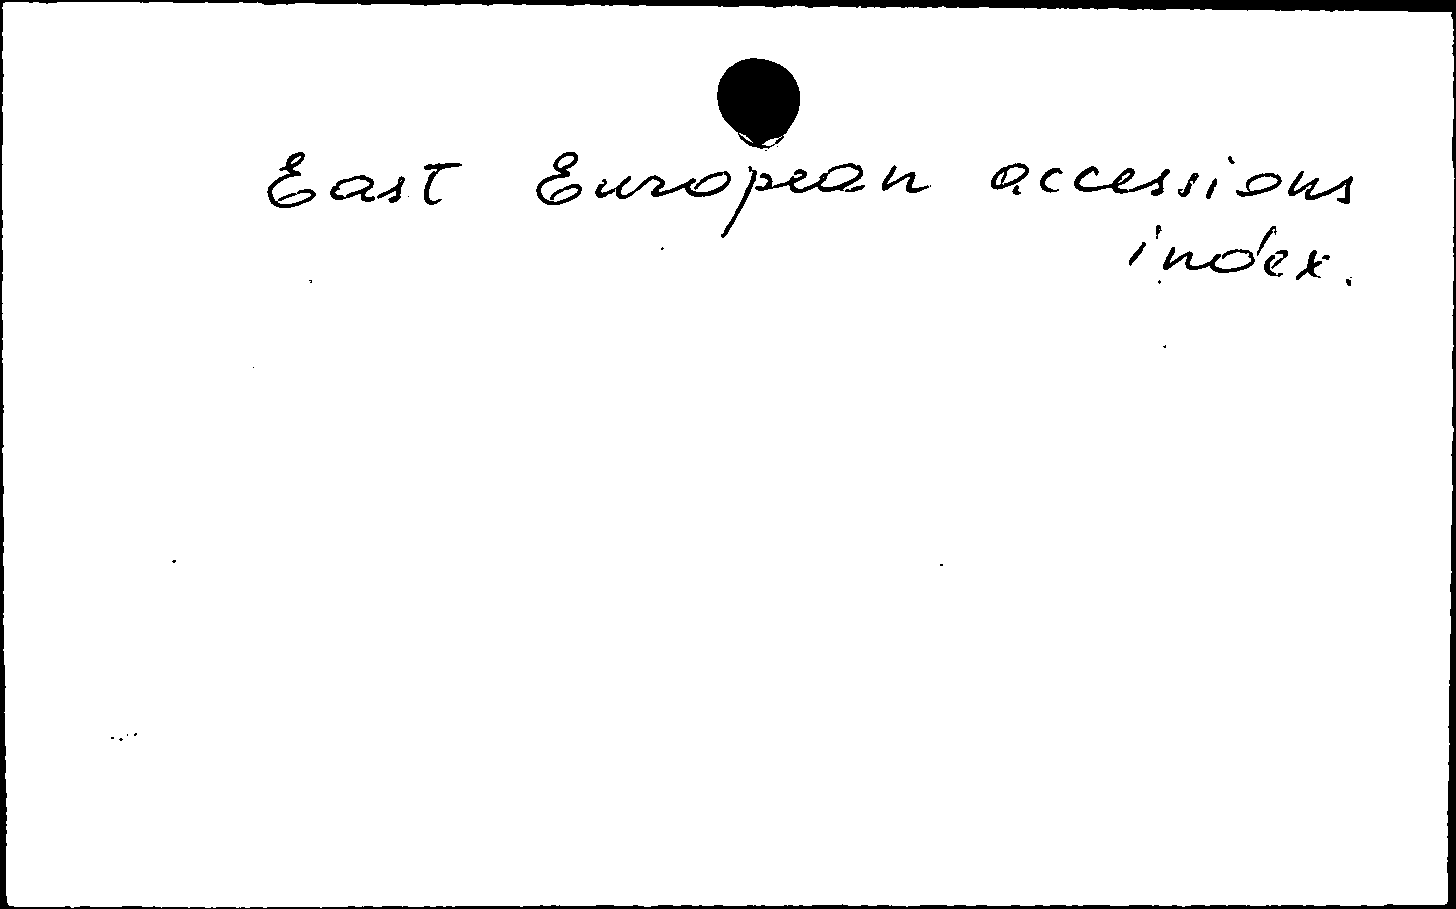 East European accessions
index.